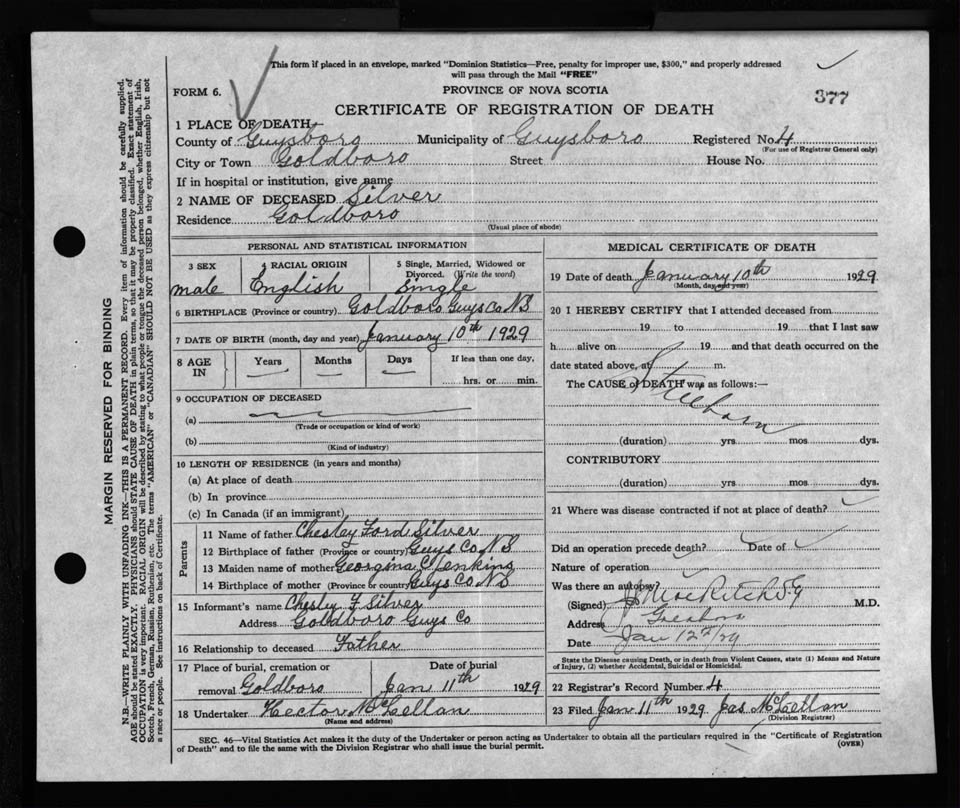 This form if placed in an envelope, marked "Dominion Statistics—Free, penalty for improper use, $300," and properly addressed
will pass through the Mail "FREE"
FORM 6.
PROVINCE OF NOVA SCOTIA
377
CERTIFICATE OF REGISTRATION OF DEATH
1 PLACE OF DEATH
County of Guysboro Municipality of Guysboro Registered No. 4
(For use of Registrar General only)
City or Town Goldboro Street House No.
If in hospital or institution, give name
2 NAME OF DECEASED Silver
Residence Goldboro
(Usual place of abode)
PERSONAL AND STATISTICAL INFORMATION
3 SEX 4 RACIAL ORIGIN 5 Single, Married, Widowed or
Divorced. (Write the word)
male English Single
6 BIRTHPLACE (Province or country) Goldboro Guys Co NS
7 DATE OF BIRTH (month, day and year) January 10th 1929
8 AGE IN Years Months Days If less than one day,
hrs. or min.
9 OCCUPATION OF DECEASED
(a)
(Trade or occupation or kind of work)
(b)
(Kind of industry)
10 LENGTH OF RESIDENCE (in years and months)
(a) At place of death
(b) In province
(c) In Canada (if an immigrant)
Parents
11 Name of father Chesley Ford Silver
12 Birthplace of father (Province or country) Guys Co NS
13 Maiden name of mother Georgina C Jenkins
14 Birthplace of mother (Province or country) Guys Co NS
15 Informant's name Chesley F Silver
Address Goldboro Guys Co
16 Relationship to deceased Father
17 Place of burial, cremation or Date of burial
removal Goldboro Jan 11th 1929
18 Undertaker Hector McLellan
(Name and address)
MEDICAL CERTIFICATE OF DEATH
19 Date of death January 10th 1929
(Month, day and year)
20 I HEREBY CERTIFY that I attended deceased from
19 to 19 that I last saw
h alive on 19 and that death occurred on the
date stated above, at m.
The CAUSE of DEATH was as follows:—
Stillborn
(duration) yrs mos dys.
CONTRIBUTORY
(duration) yrs. mos. dys.
21 Where was disease contracted if not at place of death?
Did an operation precede death? Date of
Nature of operation
Was there an autopsy?
(Signed) M.D.
Address
Date Jan 12 /29
State the Disease causing Death, or in death from Violent Causes, state (1) Means and Nature
of Injury, (2) whether Accidental, Suicidal or Homicidal.
22 Registrar's Record Number 4
23 Filed Jan 11th 1929 Jas McLellan
(Division Registrar)
SEC. 46—Vital Statistics Act makes it the duty of the Undertaker or person acting as Undertaker to obtain all the particulars required in the "Certificate of Registration
of Death" and to file the same with the Division Registrar who shall issue the burial permit.
(OVER)
MARGIN RESERVED FOR BINDING
N.B.—WRITE PLAINLY WITH UNFADING INK—THIS IS A PERMANENT RECORD. Every item of information should be carefully supplied.
AGE should be stated EXACTLY. PHYSICIANS should STATE CAUSE OF DEATH in plain terms, so that it may be properly classified. Exact statement of
OCCUPATION is very important. RACIAL ORIGIN will be described by stating to what people or tongue the deceased person belonged, whether English, Irish,
Scotch, French, German, Russian, Ruthenian, etc. The terms "AMERICAN" or "CANADIAN" SHOULD NOT BE USED as they express citizenship but not
a race or people. See instructions on back of Certificate.